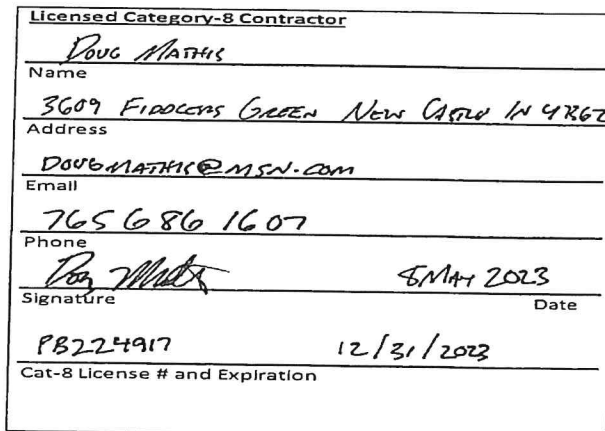 Licensed Category-8 Contractor
Doug Mathis
Name
3609 Fiddlers Green New Castle IN 47362
Address
DOUGMATHIS@MSN.COM
Email
765 686 1607
Phone
Doug Mathis 8 May 2023
Signature Date
PB224917 12/31/2023
Cat-8 License # and Expiration